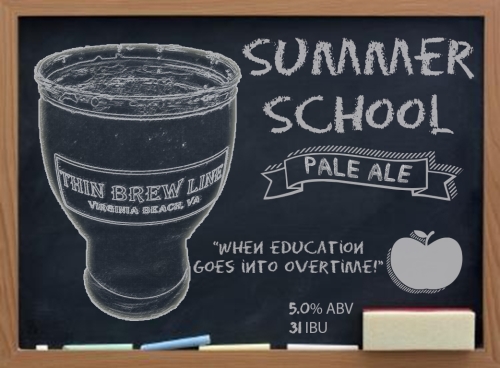 SUMMER
SCHOOL
PALE ALE
THIN BREW LINE
VIRGINIA BEACH, VA
"WHEN EDUCATION
GOES INTO OVERTIME!"
5.0% ABV
31 IBU